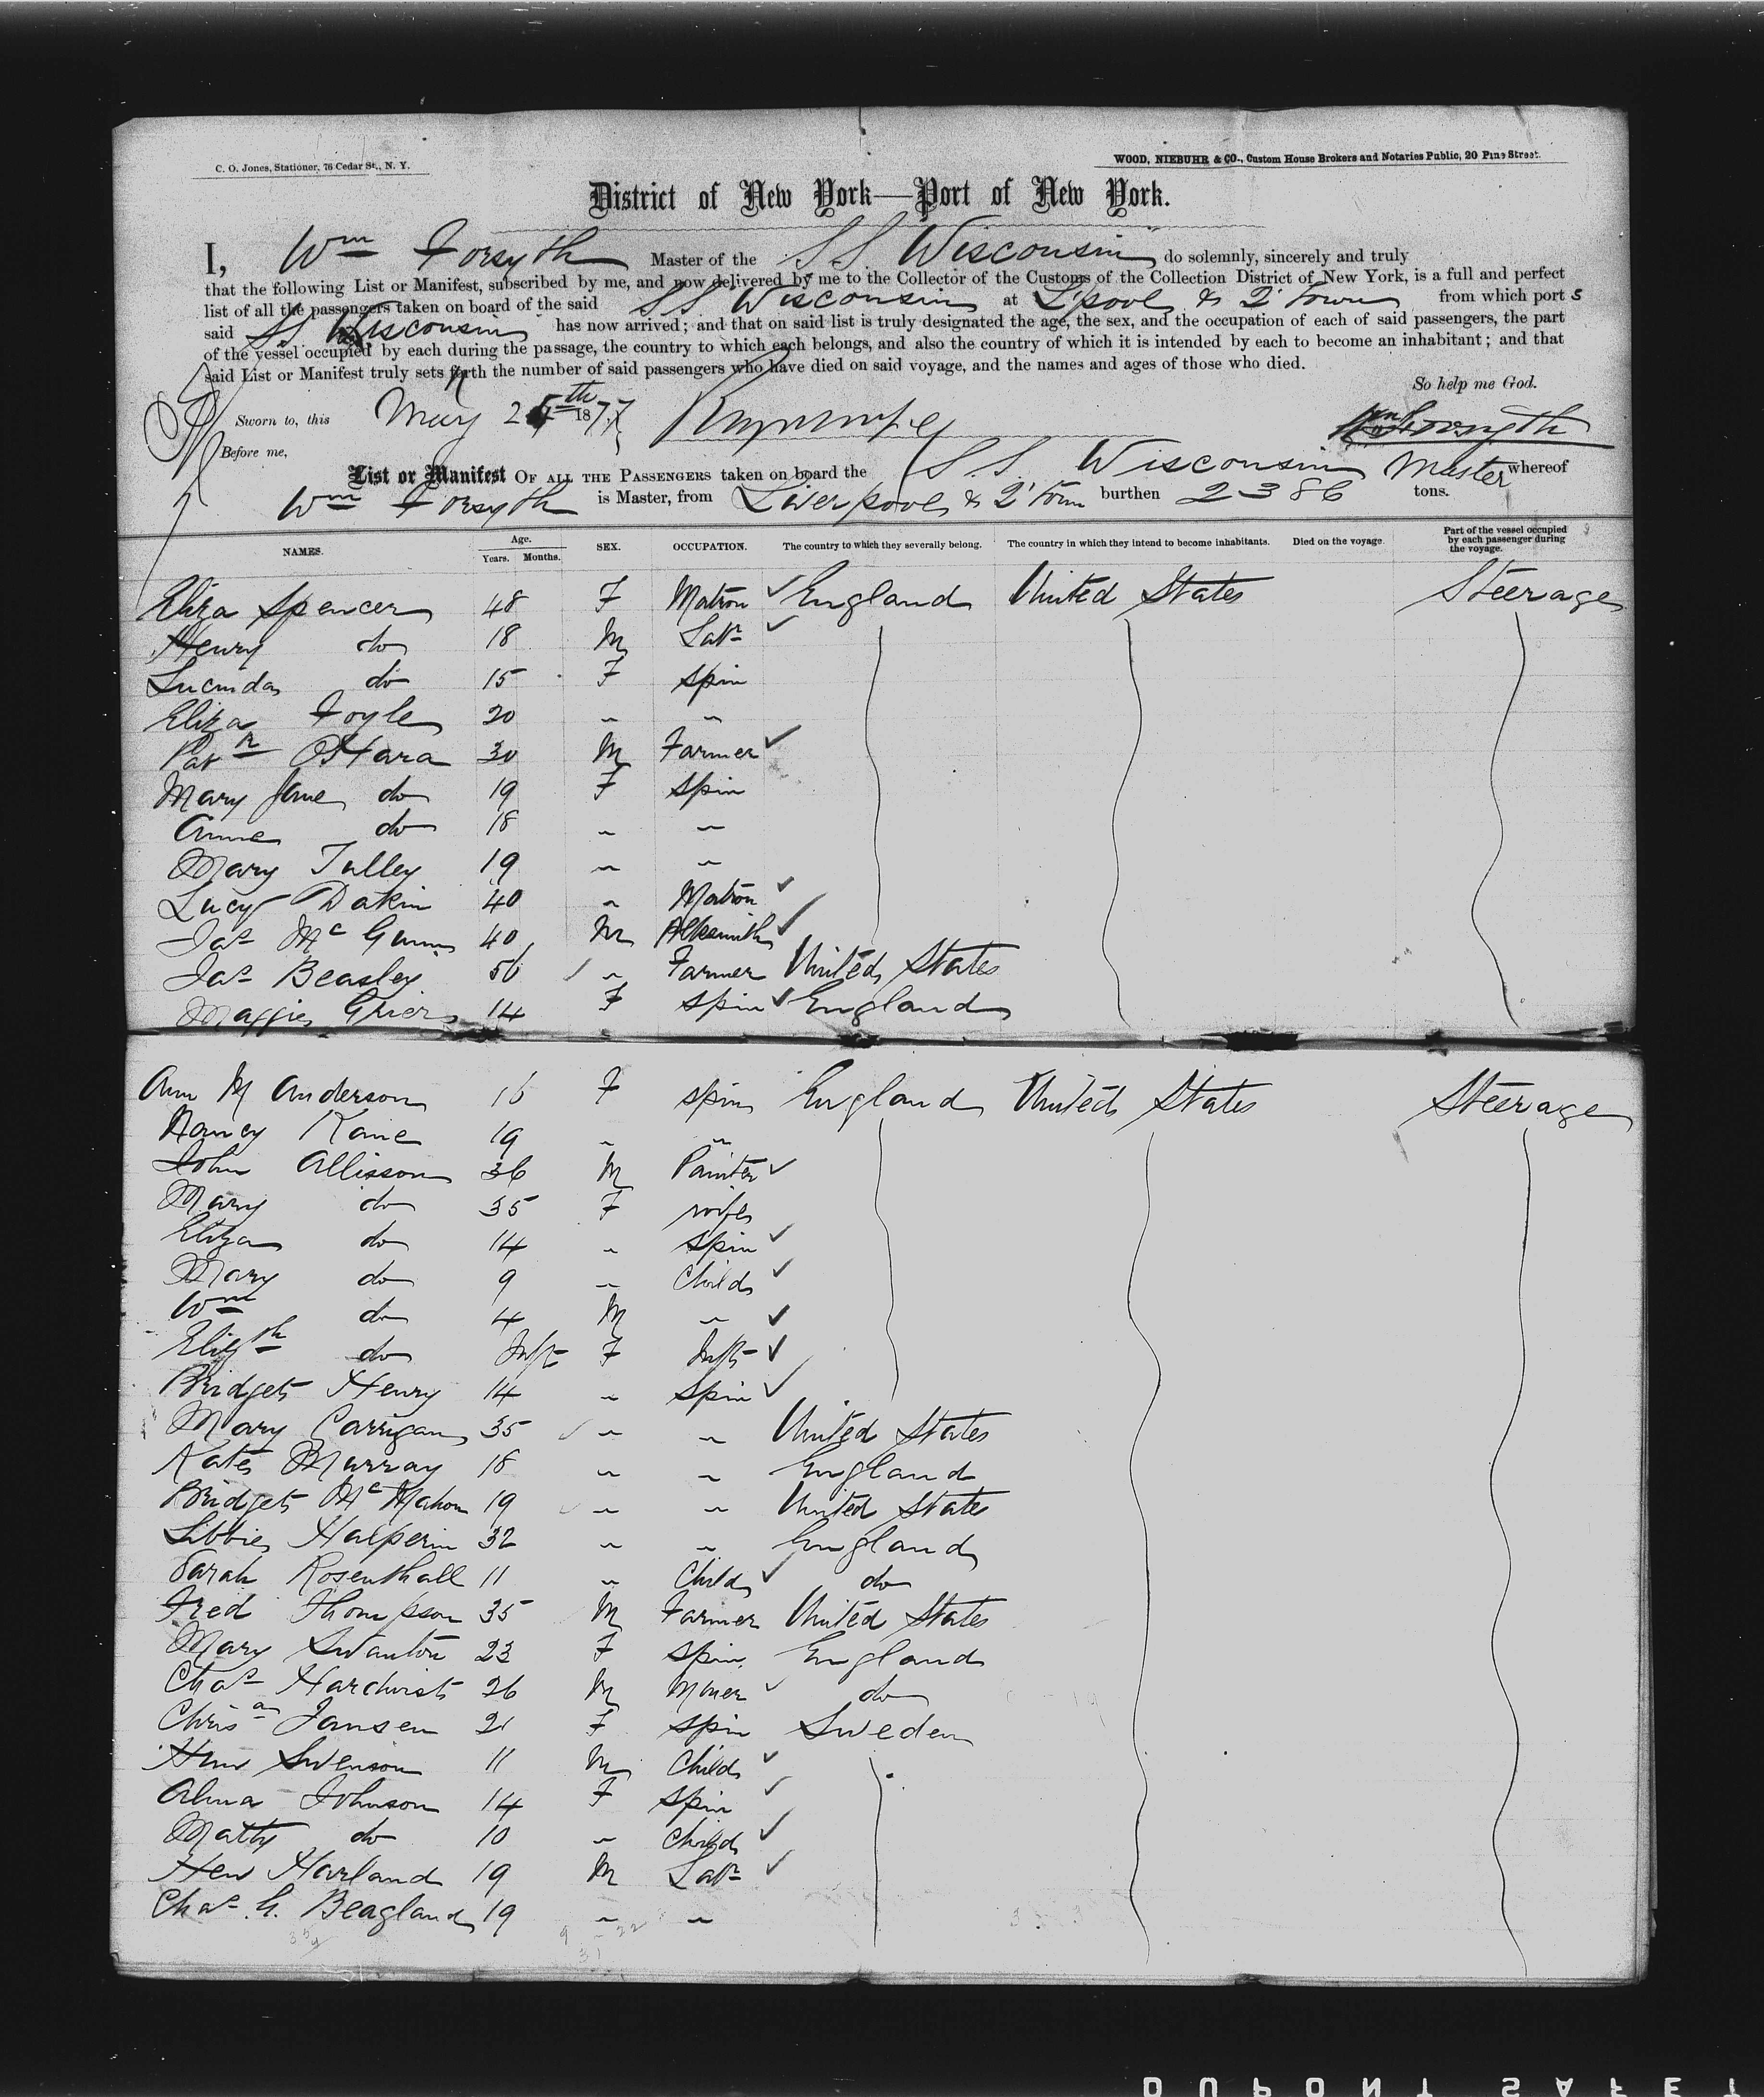 C. O. Jones, Stationer, 76 Cedar St., N. Y.
WOOD, NIEBUHR & CO., Custom House Brokers and Notaries Public, 20 Pine Street.
District of New York—Port of New York.
I, Wm Forsyth Master of the SS Wisconsin do solemnly, sincerely and truly
that the following List or Manifest, subscribed by me, and now delivered by me to the Collector of the Customs of the Collection District of New York, is a full and perfect
list of all the passengers taken on board of the said SS Wisconsin at L'pool & Q'town from which port s
said SS Wisconsin has now arrived; and that on said list is truly designated the age, the sex, and the occupation of each of said passengers, the part
of the vessel occupied by each during the passage, the country to which each belongs, and also the country of which it is intended by each to become an inhabitant; and that
said List or Manifest truly sets forth the number of said passengers who have died on said voyage, and the names and ages of those who died.
So help me God.
Sworn to, this May 2 th 1877
Wm Forsyth
Before me,
List or Manifest OF ALL THE PASSENGERS taken on board the SS Wisconsin Master whereof
Wm Forsyth is Master, from Liverpool & Q'town burthen 2386 tons.
NAMES. Age. Years. Months. SEX. OCCUPATION. The country to which they severally belong. The country in which they intend to become inhabitants. Died on the voyage. Part of the vessel occupied by each passenger during the voyage.
Eliza Spencer 48 F Matron ✓ England United States Steerage
Henry do 18 M Labr ✓
Lucinda do 15 F Spin
Eliza Foyle 20 " "
Patk O'Hara 30 M Farmer ✓
Mary Jane do 19 F Spin
Annie do 18 " "
Mary Tulley 19 " "
Lucy Dakin 40 " Matron ✓
Jas McGinn 40 M Blksmith ✓
Jas Beasley 56 ✓ " Farmer United States
Maggie Grier 14 F Spin ✓ England
Ann M Anderson 16 F Spin England United States Steerage
Nancy Kane 19 " "
John Allisson 36 M Painter ✓
Mary do 35 F wife
Eliza do 14 " Spin ✓
Mary do 9 " Child ✓
Wm do 4 M " ✓
Elizth do Inft F Inft ✓
Bridget Henry 14 " Spin ✓
Mary Carrigan 35 ✓ " " United States
Kate Murray 18 " " England
Bridget McMahon 19 ✓ " " United States
Libbie Halperin 32 " " England
Sarah Rosenthall 11 " Child ✓ do
Fred Thompson 35 M Farmer United States
Mary Swanton 23 F Spin England
Chas Hardwist 26 M Miner ✓ do
Chrisan Jansen 21 F Spin Sweden
Swenson 11 M Child ✓
Alma Johnson 14 F Spin ✓
Matty do 10 " Child ✓
Hen Harland 19 M Labr ✓
Chas G. Beagland 19 " "
DUPONT SAFET